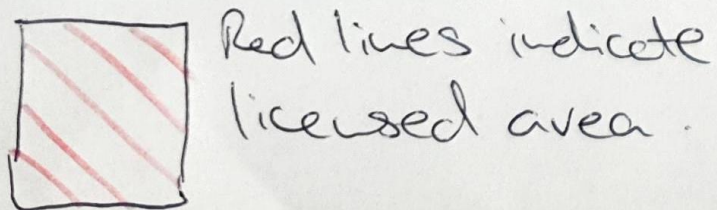 Red lines indicate
licensed area.